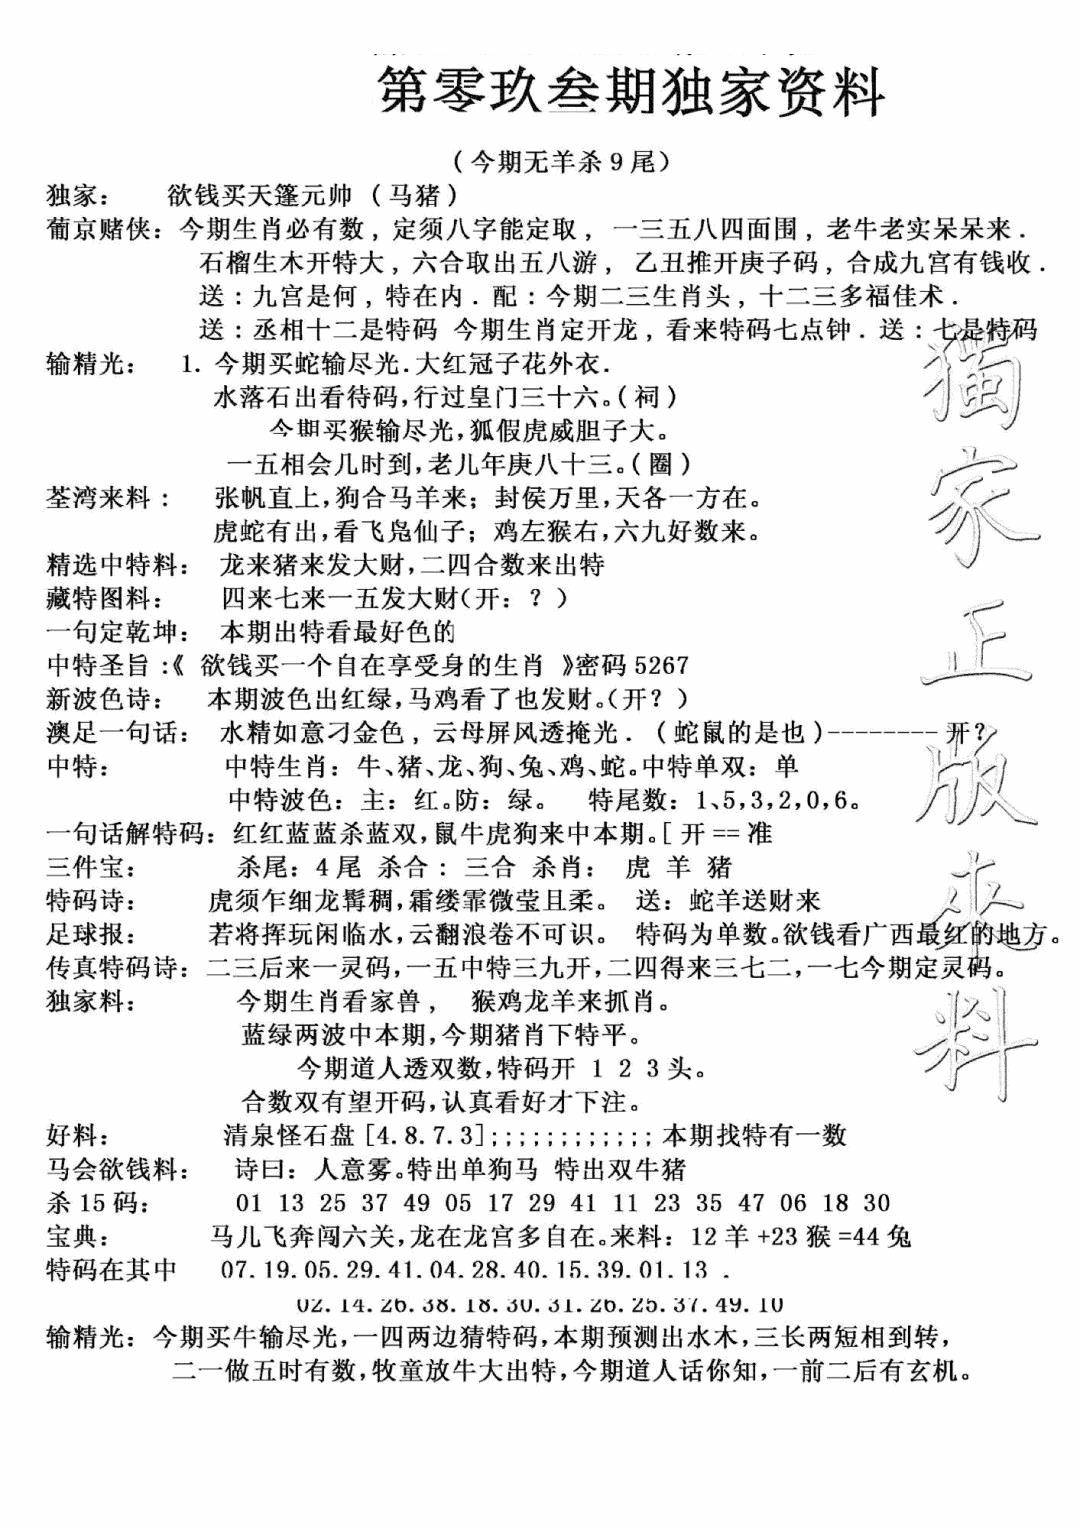 第零玖叁期独家资料
（今期无羊杀9尾）
独家： 欲钱买天篷元帅 （马猪）
葡京赌侠：今期生肖必有数，定须八字能定取， 一三五八四面围，老牛老实呆呆来．
石榴生木开特大，六合取出五八游， 乙丑推开庚子码，合成九宫有钱收．
送：九宫是何，特在内．配：今期二三生肖头，十二三多福佳术．
送：丞相十二是特码 今期生肖定开龙，看来特码七点钟．送：七是特码
输精光： 1. 今期买蛇输尽光.大红冠子花外衣.
水落石出看待码,行过皇门三十六。(祠)
今期买猴输尽光,狐假虎威胆子大。
一五相会几时到,老儿年庚八十三。(圈)
荃湾来料： 张帆直上,狗合马羊来；封侯万里,天各一方在。
虎蛇有出,看飞凫仙子；鸡左猴右,六九好数来。
精选中特料： 龙来猪来发大财,二四合数来出特
藏特图料： 四来七来一五发大财(开：？)
一句定乾坤： 本期出特看最好色的
中特圣旨:《 欲钱买一个自在享受身的生肖 》密码5267
新波色诗： 本期波色出红绿,马鸡看了也发财。(开？)
澳足一句话： 水精如意刁金色，云母屏风透掩光．（蛇鼠的是也)--------开？
中特： 中特生肖：牛、猪、龙、狗、兔、鸡、蛇。中特单双：单
中特波色：主：红。防：绿。 特尾数：1、5,3,2,0,6。
一句话解特码：红红蓝蓝杀蓝双,鼠牛虎狗来中本期。[开==准
三件宝： 杀尾：4尾 杀合：三合 杀肖： 虎 羊 猪
特码诗： 虎须乍细龙髯稠,霜缕霏微莹且柔。 送：蛇羊送财来
足球报： 若将挥玩闲临水,云翻浪卷不可识。 特码为单数。欲钱看广西最红的地方。
传真特码诗：二三后来一灵码,一五中特三九开,二四得来三七二,一七今期定灵码。
独家料： 今期生肖看家兽， 猴鸡龙羊来抓肖。
蓝绿两波中本期,今期猪肖下特平。
今期道人透双数,特码开 1 2 3头。
合数双有望开码,认真看好才下注。
好料： 清泉怪石盘[4.8.7.3];;;;;;;;;;;;本期找特有一数
马会欲钱料： 诗曰：人意雾。特出单狗马 特出双牛猪
杀15码： 01 13 25 37 49 05 17 29 41 11 23 35 47 06 18 30
宝典： 马儿飞奔闯六关,龙在龙宫多自在。来料：12羊+23猴=44兔
特码在其中 07.19.05.29.41.04.28.40.15.39.01.13 .
02.14.26.38.18.30.31.26.25.37.49.10
输精光：今期买牛输尽光,一四两边猜特码,本期预测出水木,三长两短相到转,
二一做五时有数,牧童放牛大出特,今期道人话你知,一前二后有玄机。
獨家正版來料